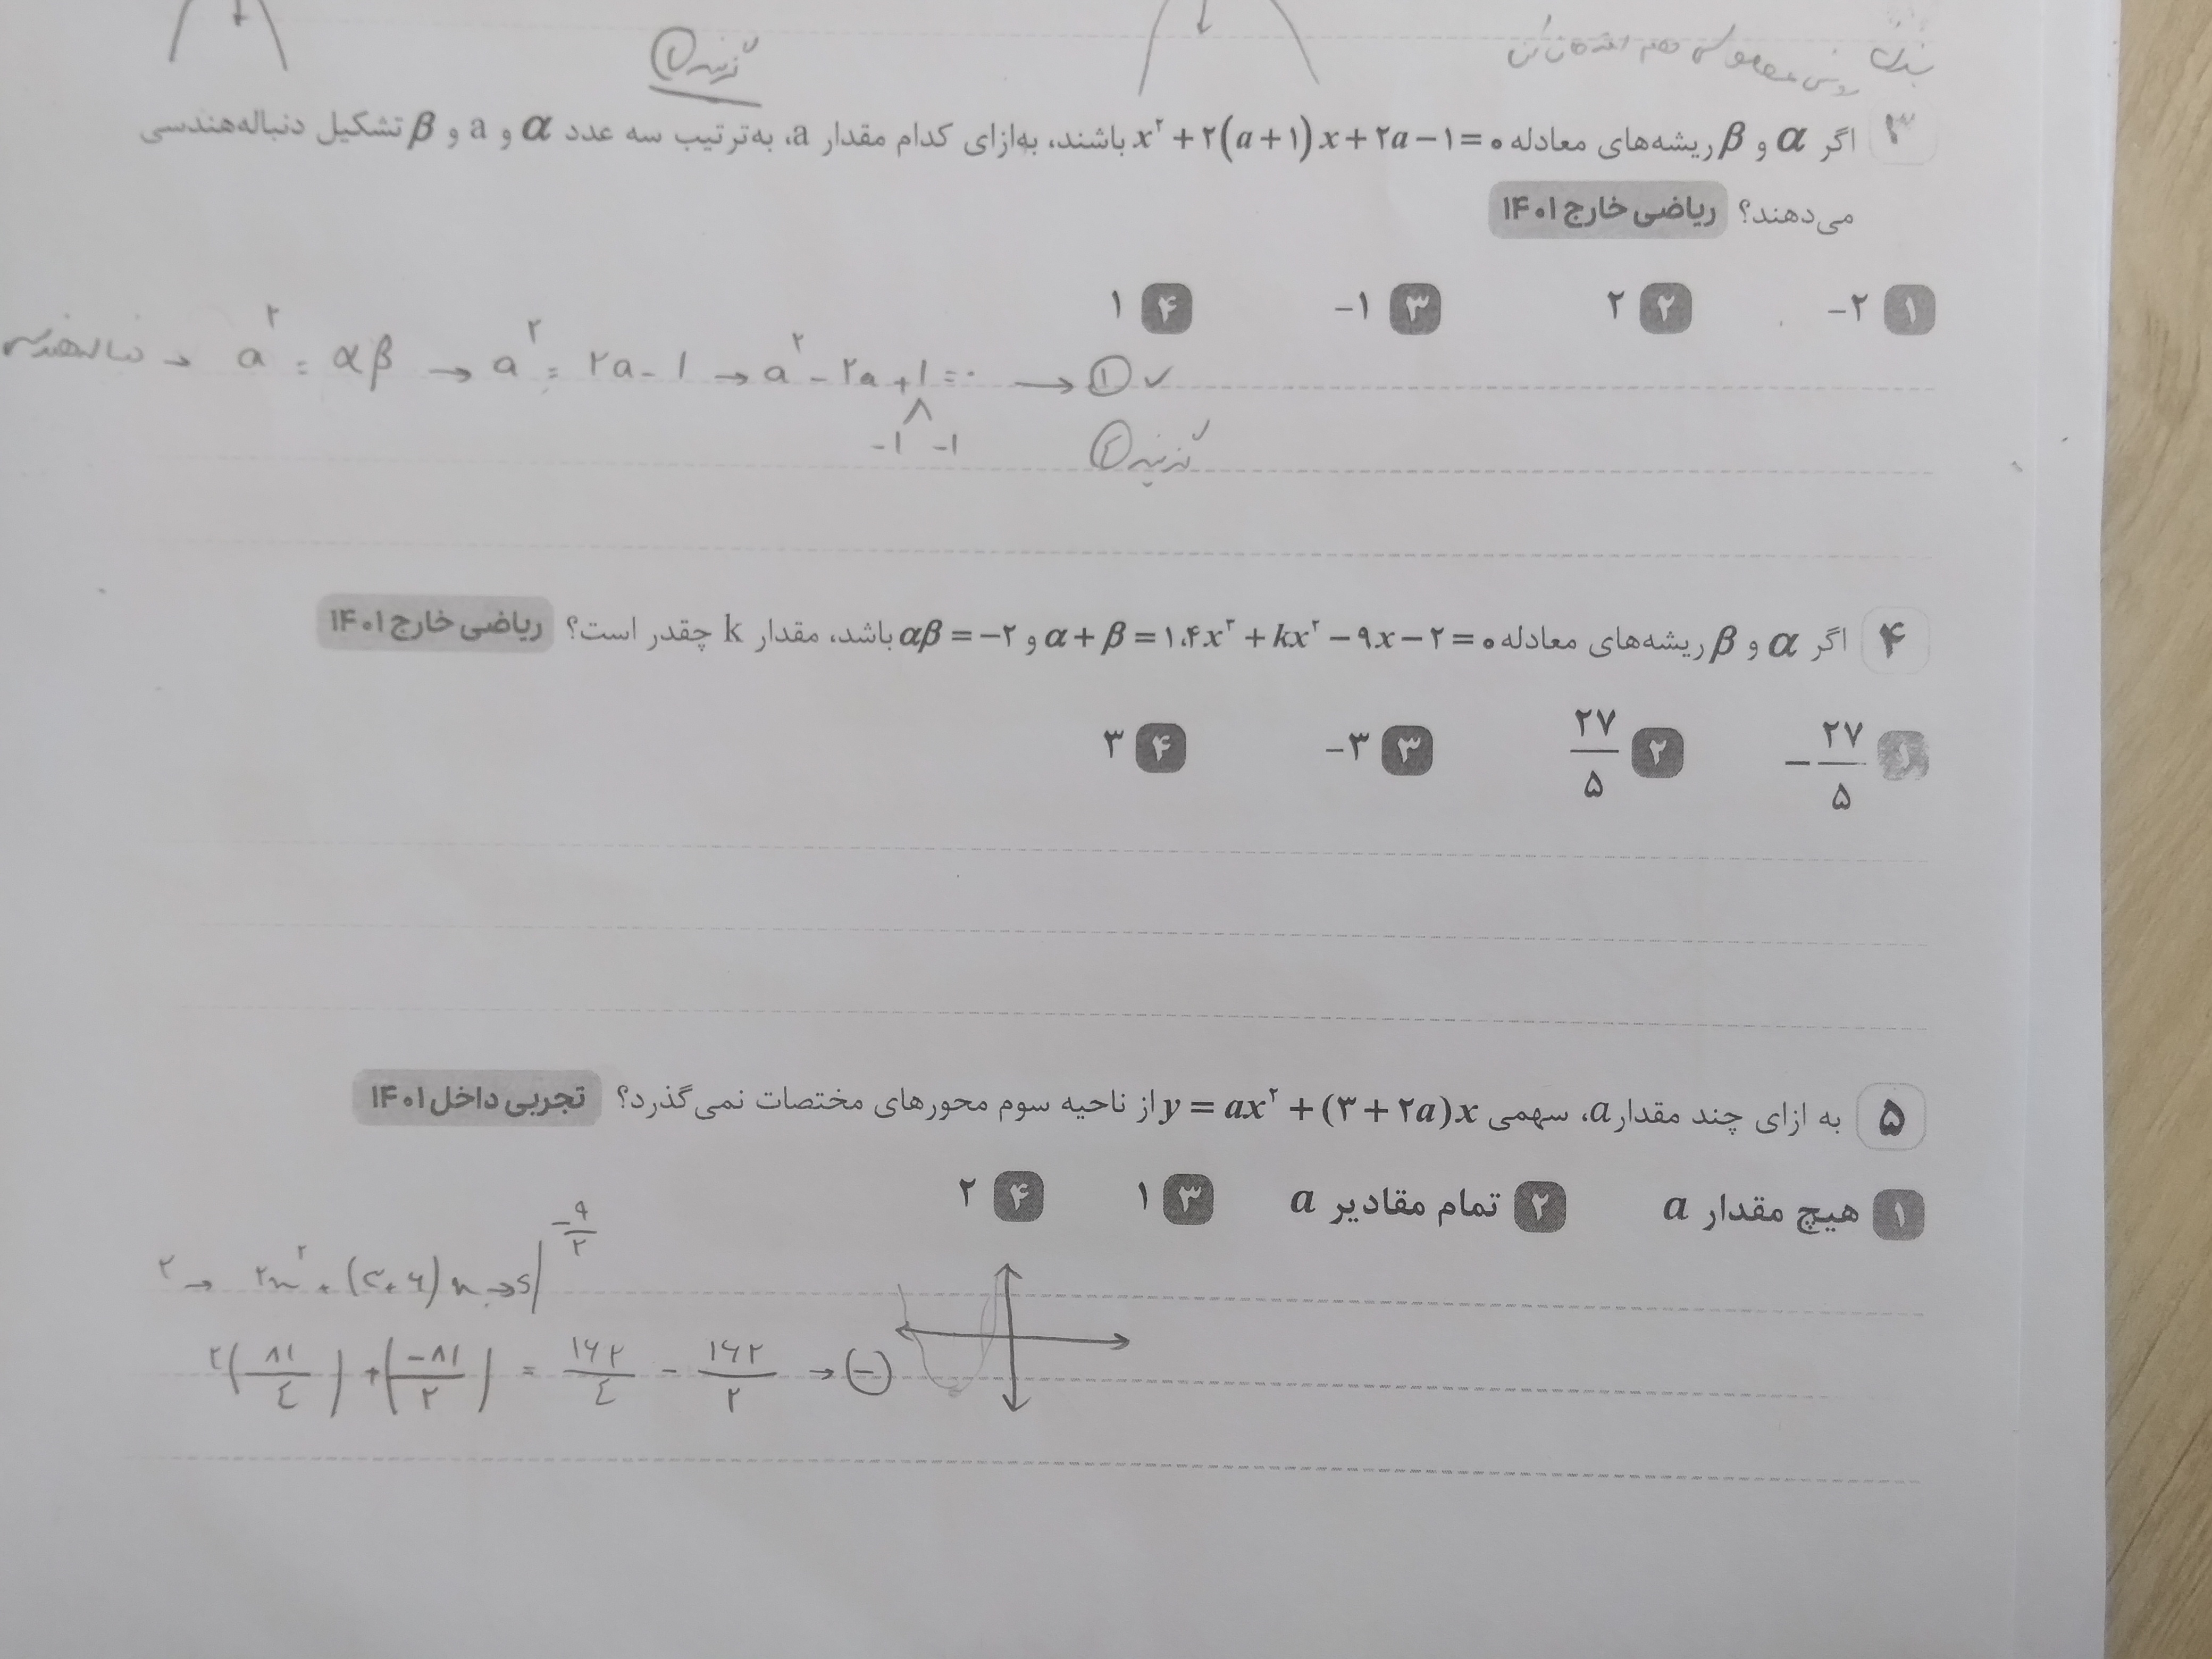 گزینه ①
۳ اگر α و β ریشه‌های معادله x² + ۲(a+۱)x + ۲a − ۱ = ۰ باشند، به‌ازای کدام مقدار a، به‌ترتیب سه عدد α و a و β تشکیل دنباله‌هندسی
می‌دهند؟ ریاضی خارج ۱۴۰۱
۱ −۲ ۲ ۲ ۳ −۱ ۴ ۱
→ a² = αβ → a² = ۲a − ۱ → a² − ۲a + ۱ = ۰ → ① ✓
−۱ −۱
گزینه
۴ اگر α و β ریشه‌های معادله ۴x³ + kx² − ۹x − ۲ = ۰، α + β = ۱ و αβ = −۲ باشد، مقدار k چقدر است؟ ریاضی خارج ۱۴۰۱
۱ −۲۷/۵ ۲ ۲۷/۵ ۳ −۳ ۴ ۳
۵ به ازای چند مقدار a، سهمی y = ax² + (۳ + ۲a)x از ناحیه سوم محورهای مختصات نمی‌گذرد؟ تجربی داخل ۱۴۰۱
۱ هیچ مقدار a ۲ تمام مقادیر a ۳ ۱ ۴ ۲
۲ → ۲x² + (۳+۶)x → s| −۹/۲
۲(۸۱/٤) + (−۸۱/۲) = ۱۶۲/٤ − ۱۶۲/۲ → (−)